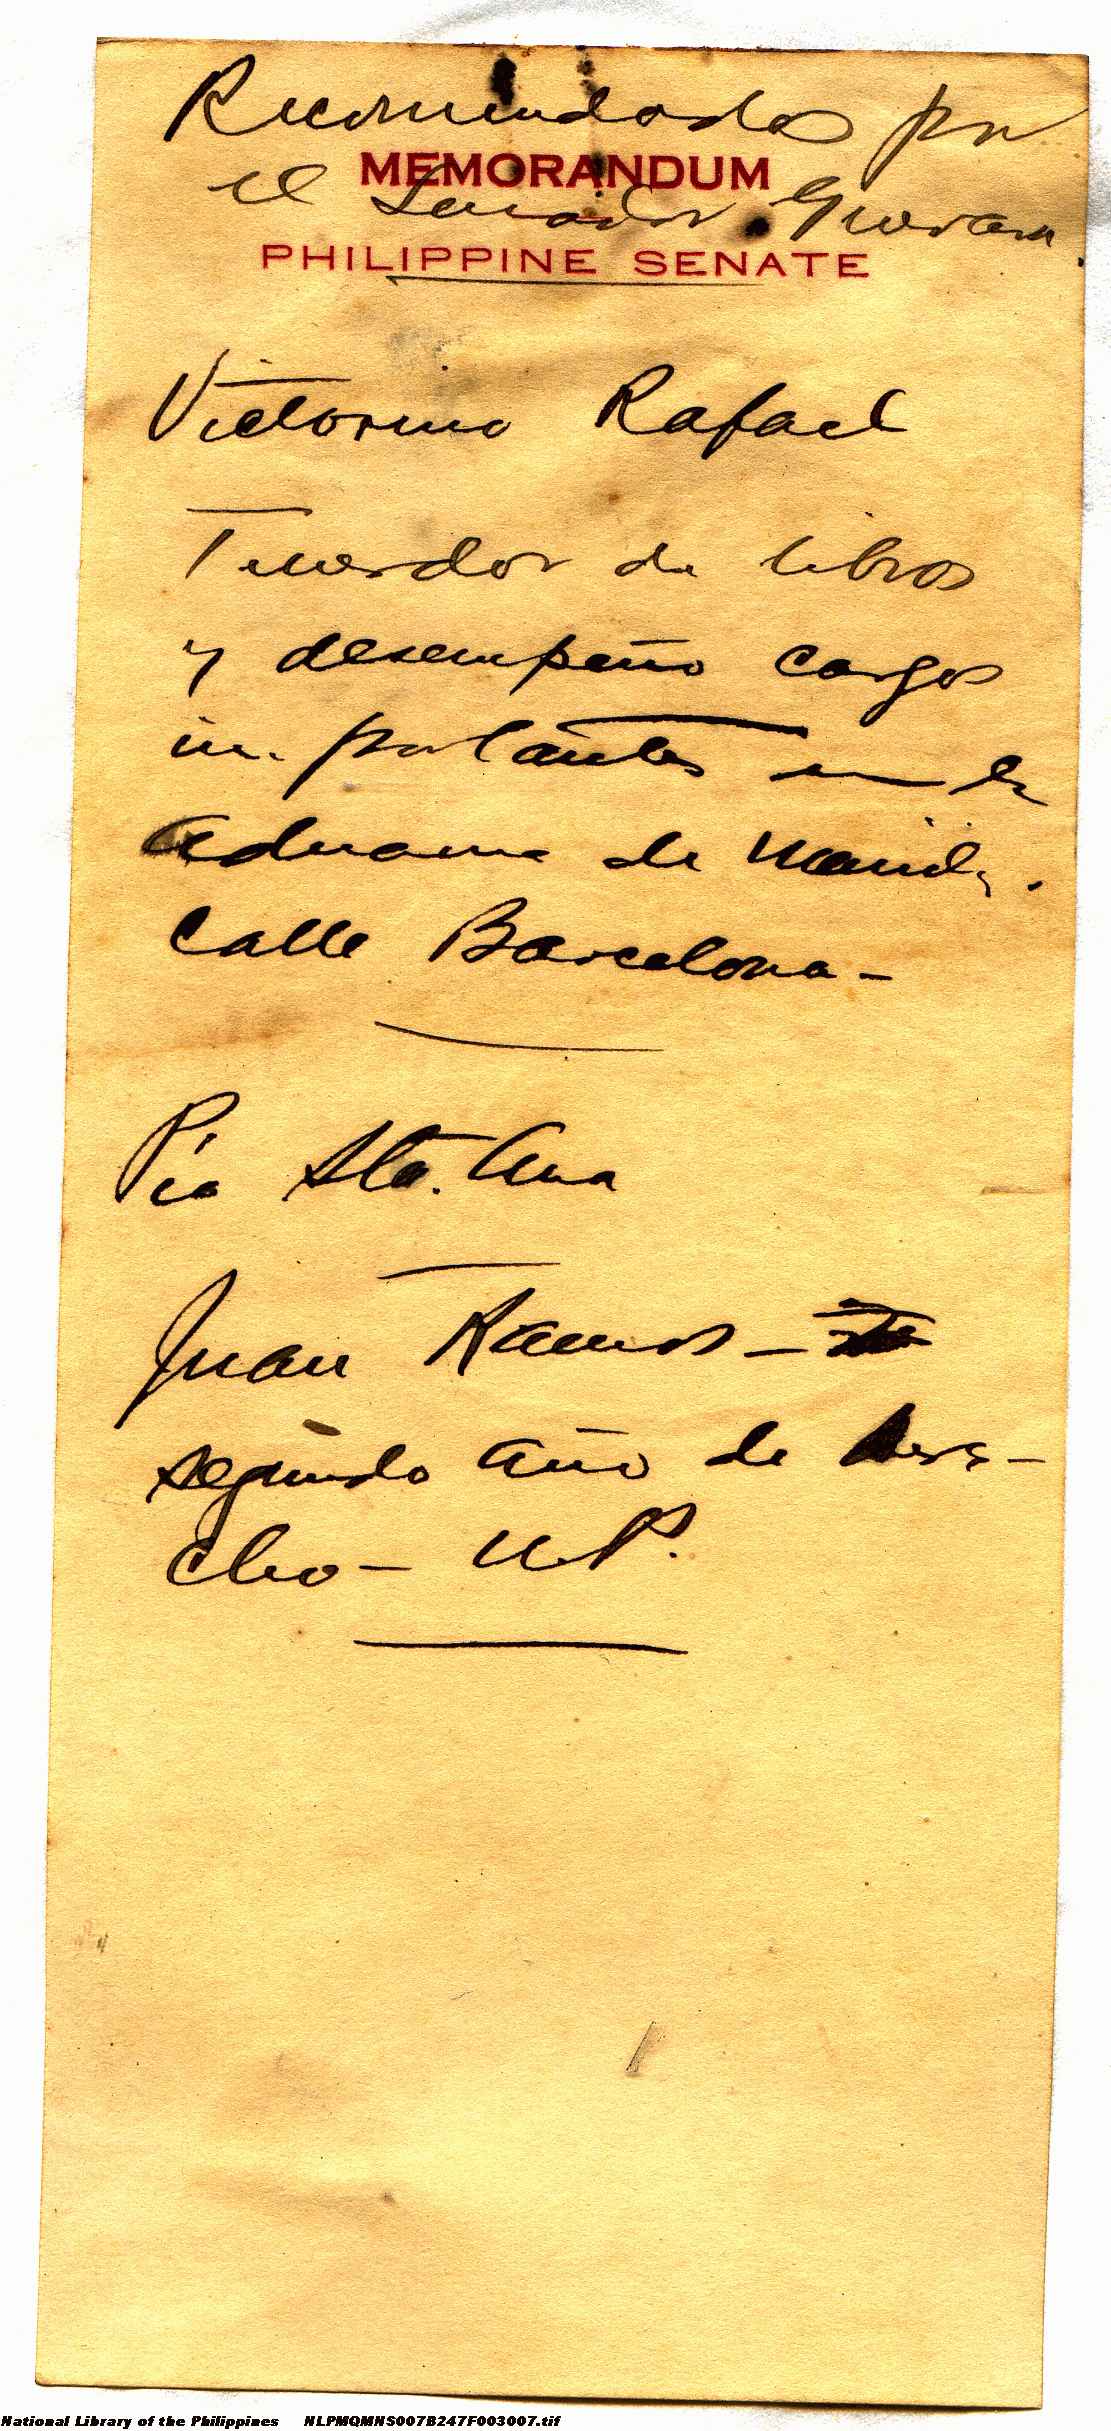 Recomendados por
MEMORANDUM
el Senador Guevara
PHILIPPINE SENATE
Victorino Rafael
Tenedor de libros
y desempeño cargos
importantes en la
Aduana de Manila.
Calle Barcelona -
Pio Sta. Ana
Juan Ramos -
segundo año de Dere-
cho - U.P.
National Library of the Philippines NLPMQMNS007B247F003007.tif